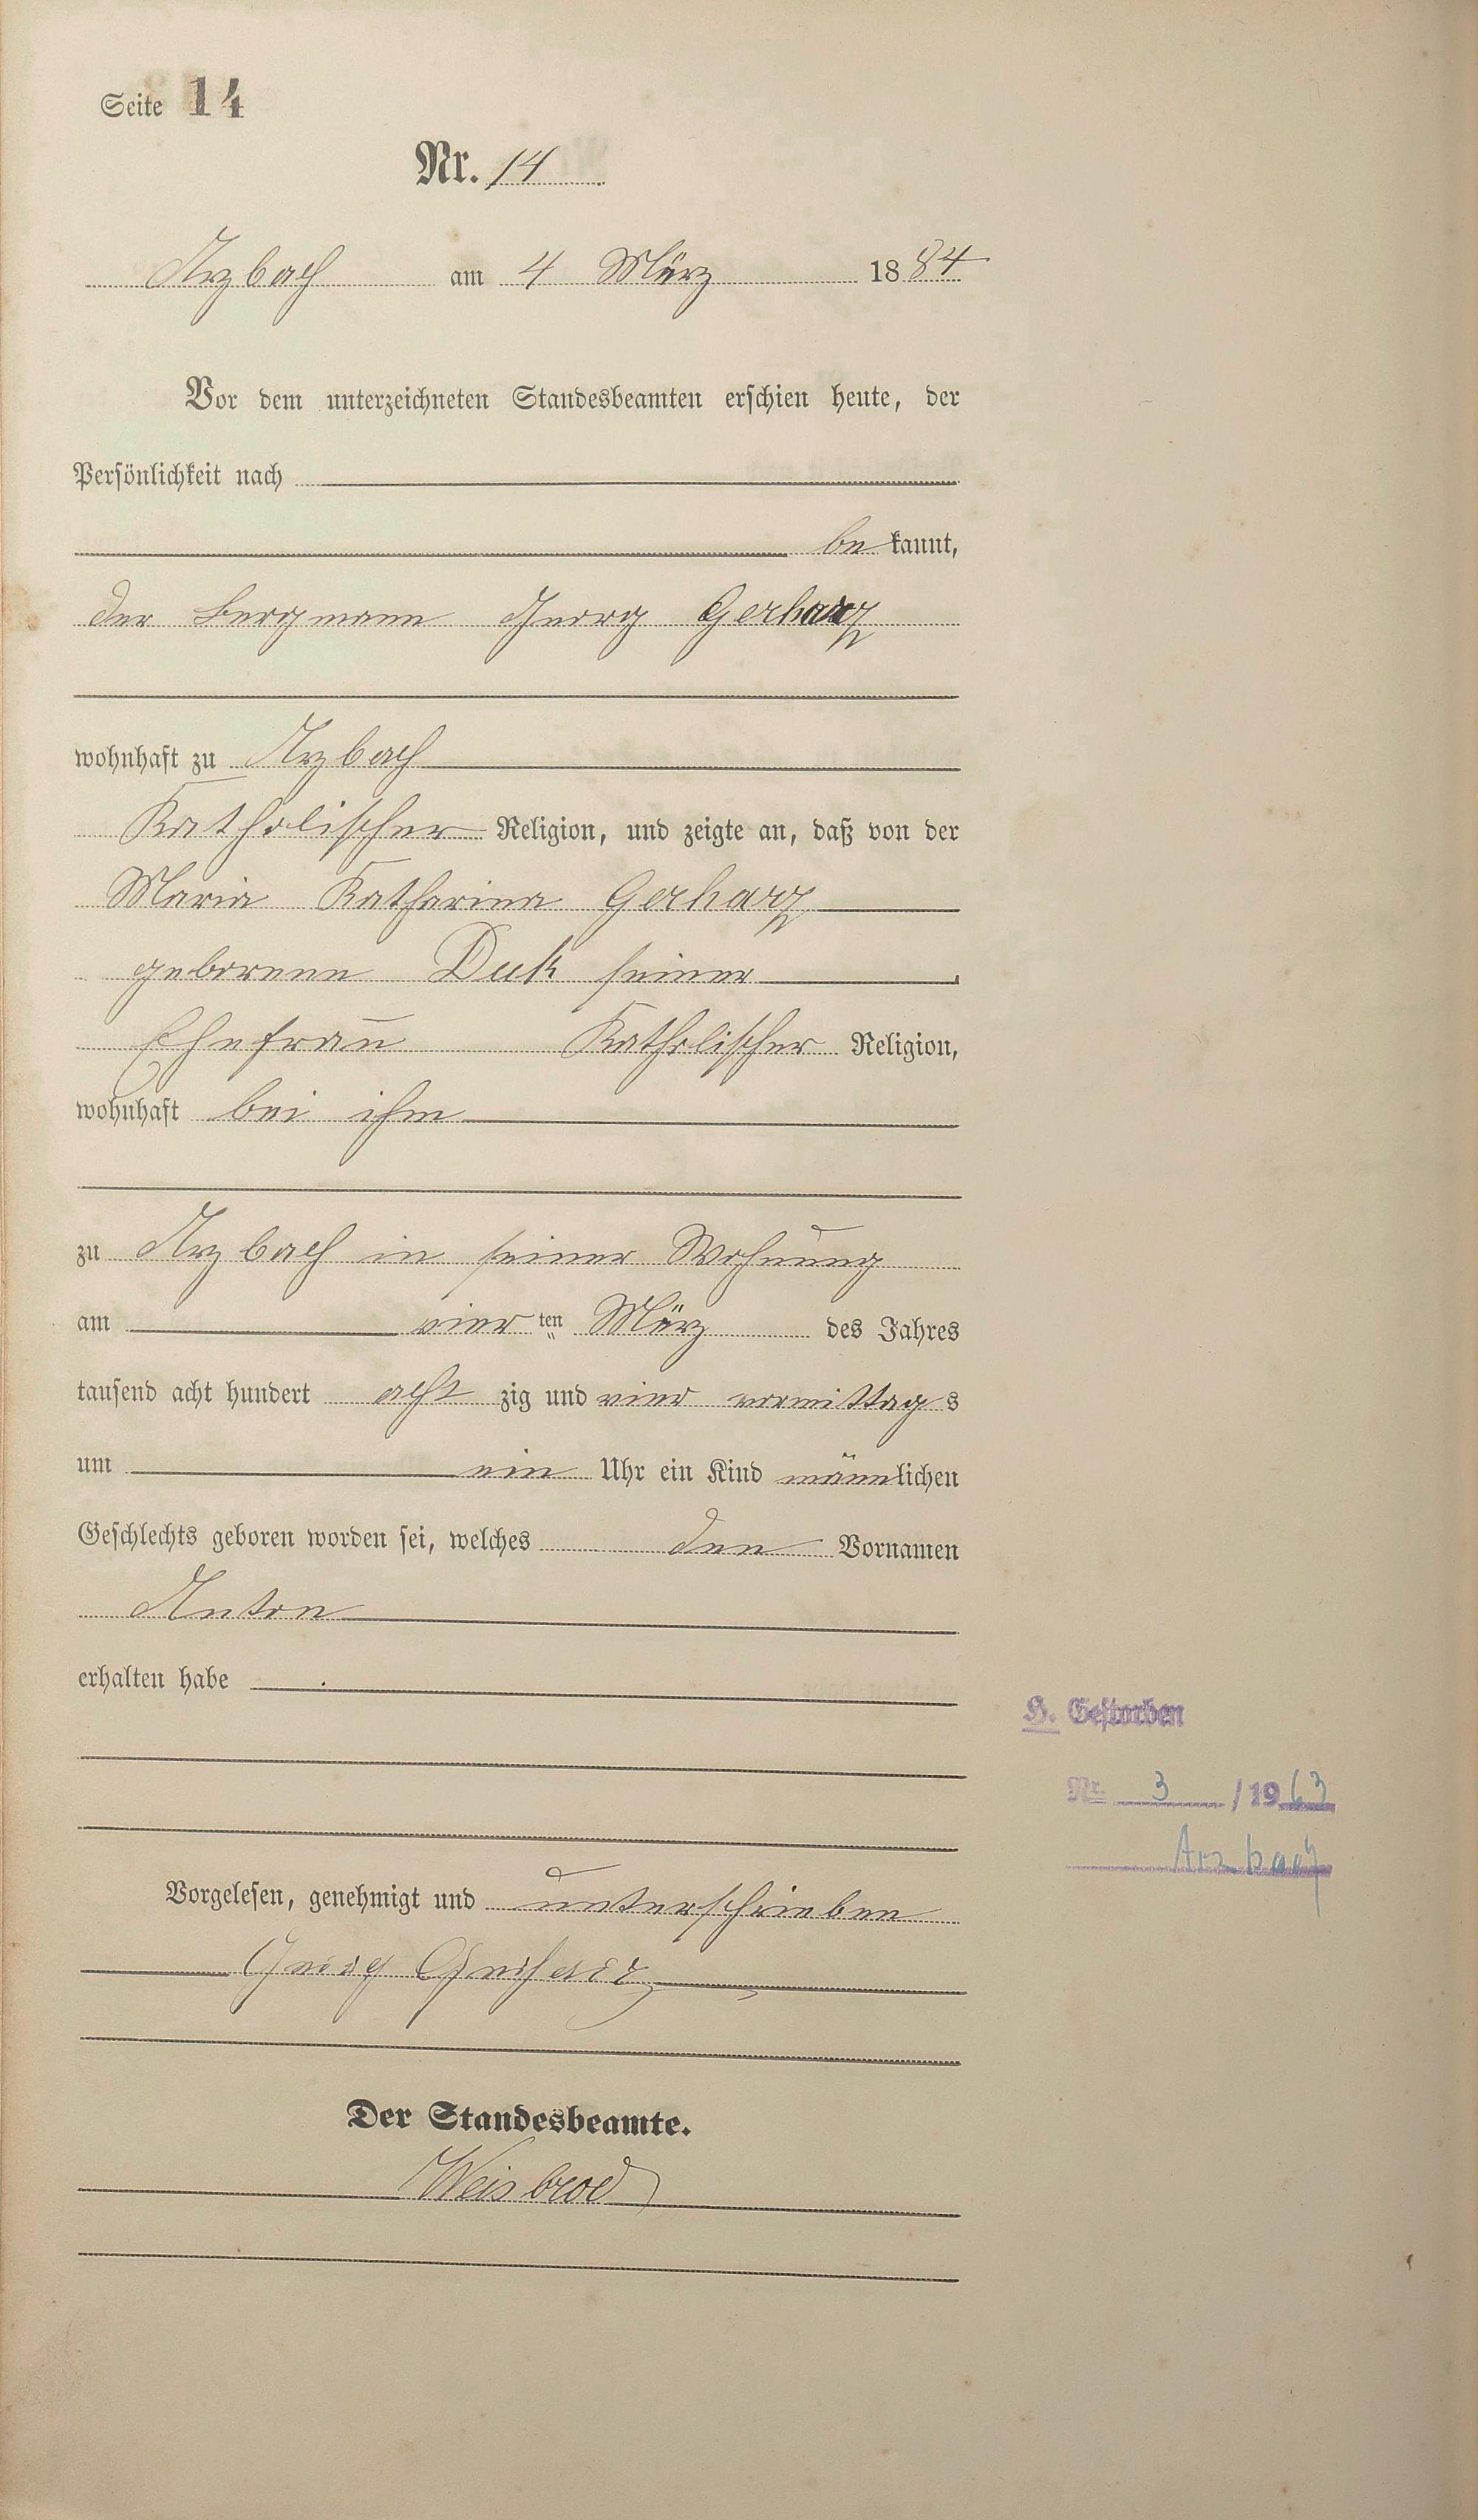 Seite 14
Nr. 14
Arzbach am 4 März 1884
Vor dem unterzeichneten Standesbeamten erschien heute, der
Persönlichkeit nach
bekannt,
der Bergmann Georg Gerharz
wohnhaft zu Arzbach
Katholischer Religion, und zeigte an, daß von der
Maria Katharina Gerharz
geborene Duk seiner
Ehefrau Katholischer Religion,
wohnhaft bei ihm
zu Arzbach in seiner Wohnung
am vier ten März des Jahres
tausend acht hundert acht zig und vier vormittags
um ein Uhr ein Kind männlichen
Geschlechts geboren worden sei, welches den Vornamen
Anton
erhalten habe
H. Gestorben
Nr. 3 / 1963
Arzbach
Vorgelesen, genehmigt und unterschrieben
Georg Gerharz
Der Standesbeamte.
Weisbrod